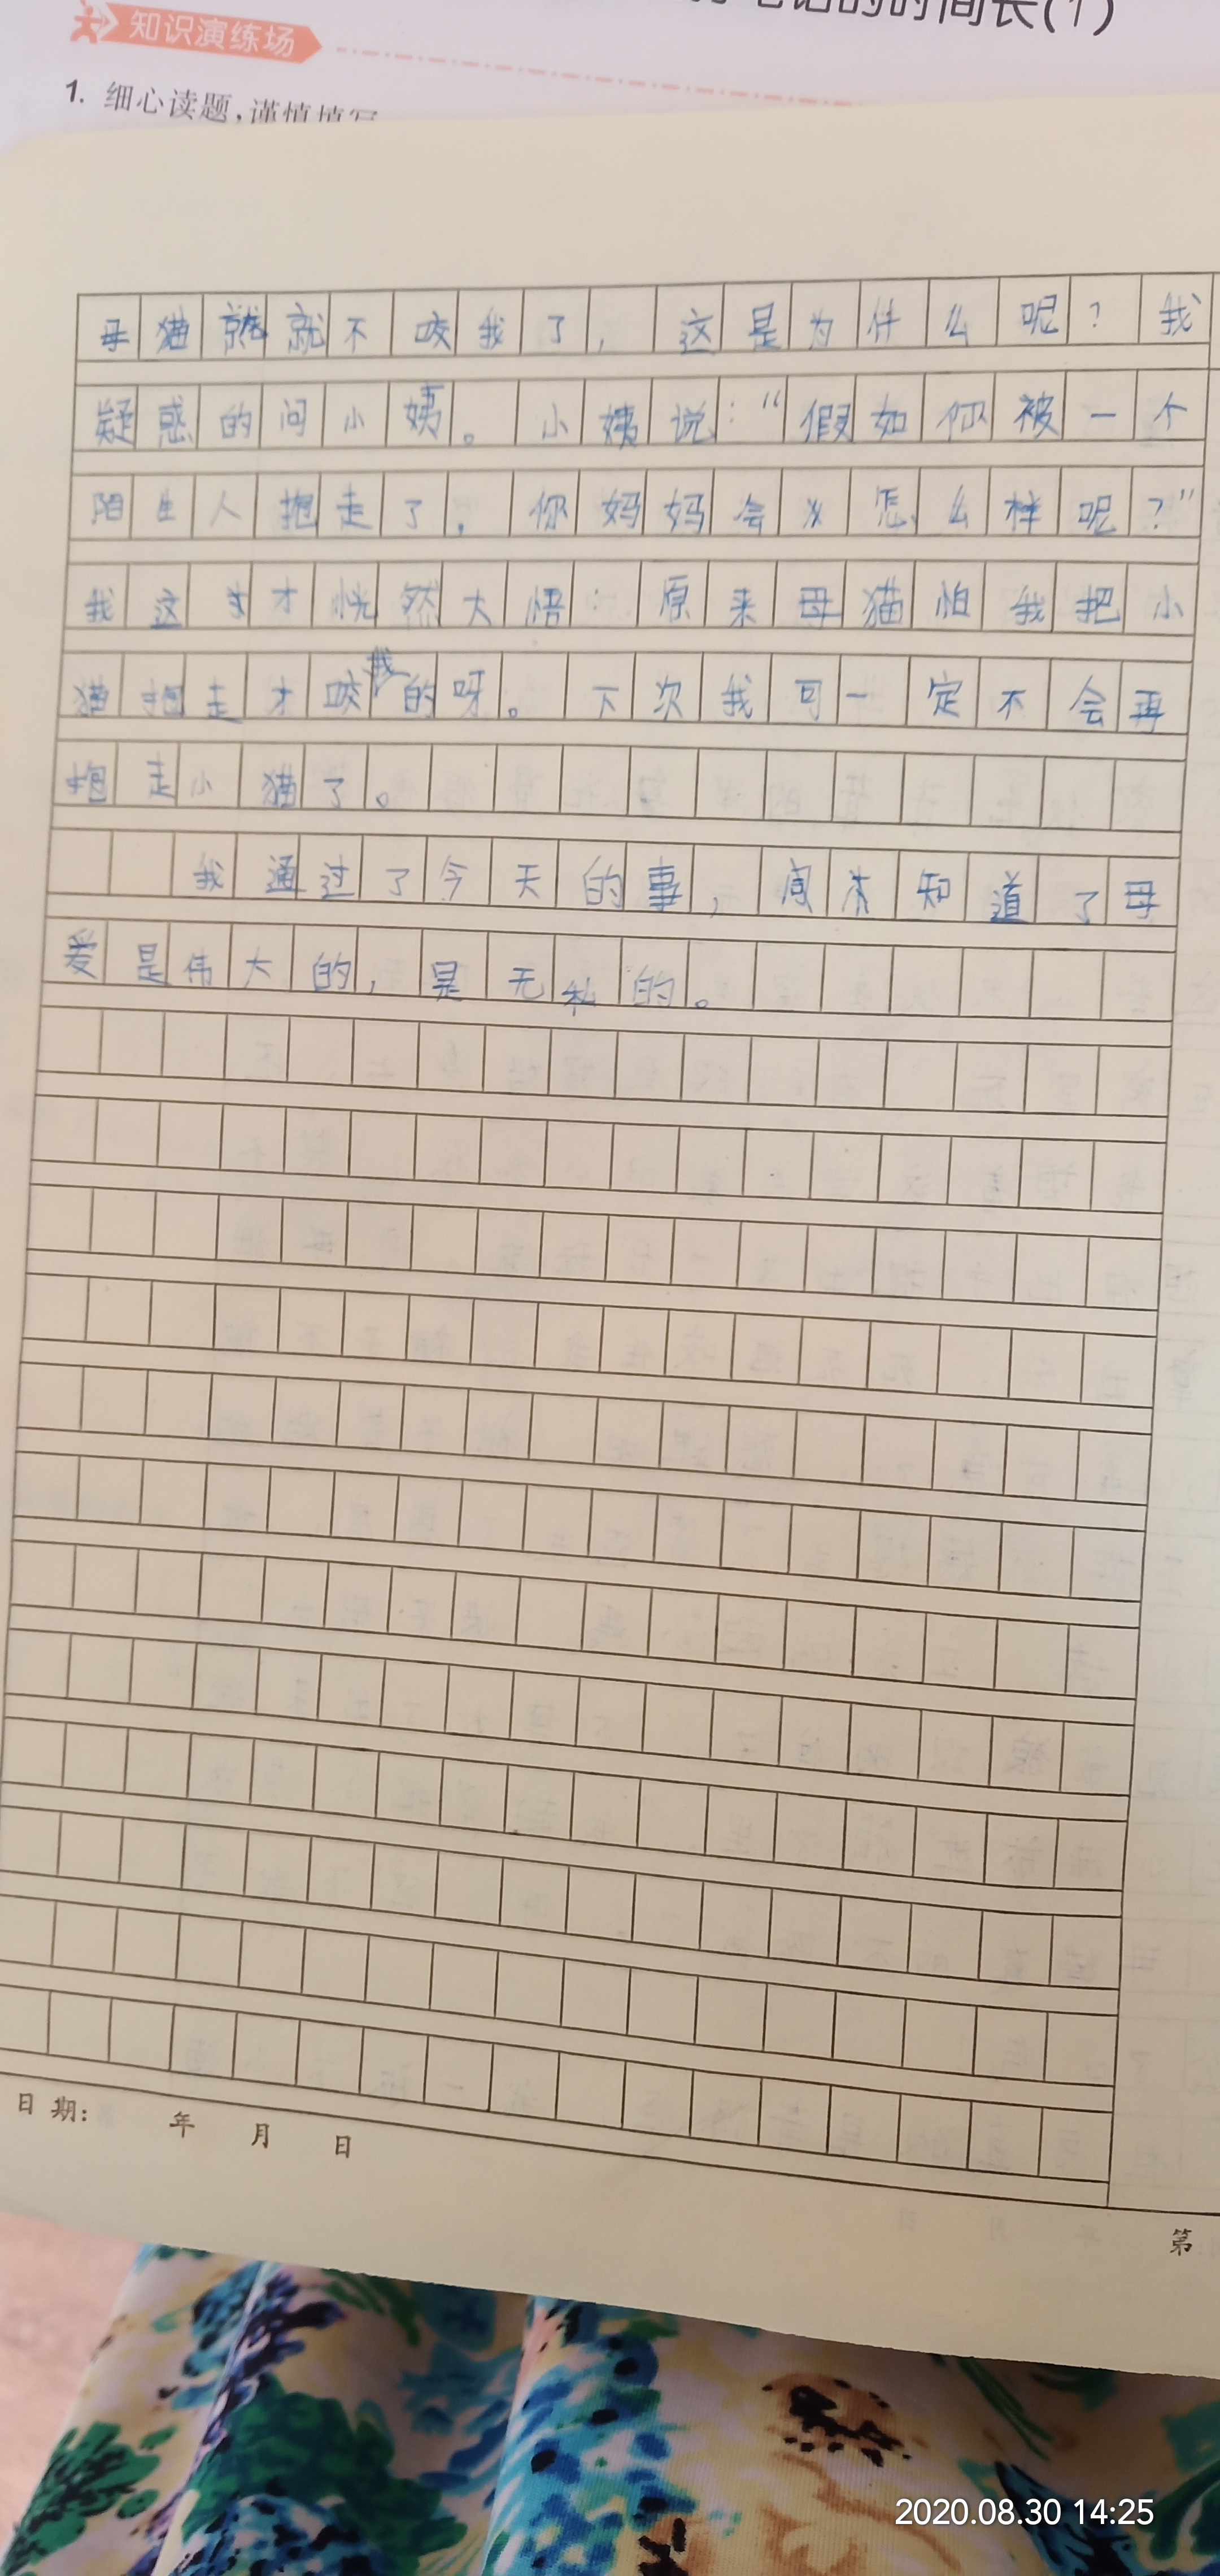 的时间长(1)
知识演练场
1. 细心读题,谨慎填写
母猫就就不咬我了,这是为什么呢?我
疑惑的问小姨。小姨说:“假如你被一个
陌生人抱走了,你妈妈会怎么样呢?”
我这才恍然大悟:原来母猫怕我把小
猫抱走才咬我的呀。下次我可一定不会再
抱走小猫了。
我通过了今天的事,知道了母
爱是伟大的,是无私的。
日期: 年 月 日
第
2020.08.30 14:25